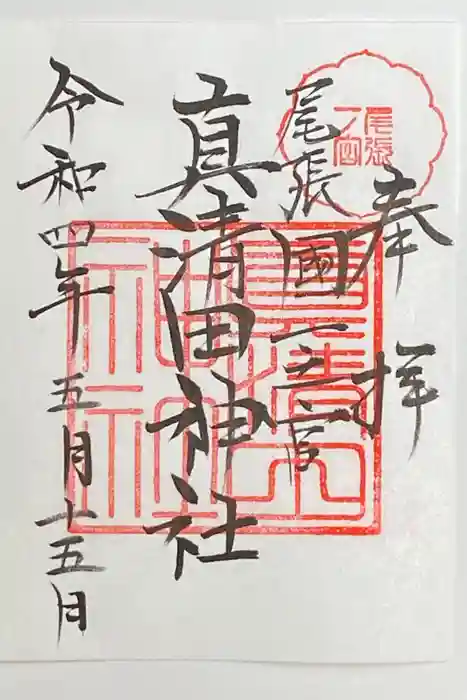 奉拝
尾張國一之宮
真清田神社
令和四年五月十五日
尾張
一ノ宮
真清田
神社